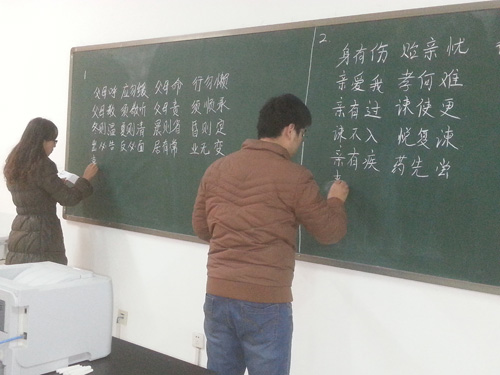 1
父母呼 应勿缓 父母命 行勿懒
父母教 须敬听 父母责 须顺承
冬则温 夏则清 晨则省 昏则定
出必告 反必面 居有常 业无变
2
身有伤 贻亲忧
亲爱我 孝何难
亲有过 谏使更
谏不入 悦复谏
亲有疾 药先尝